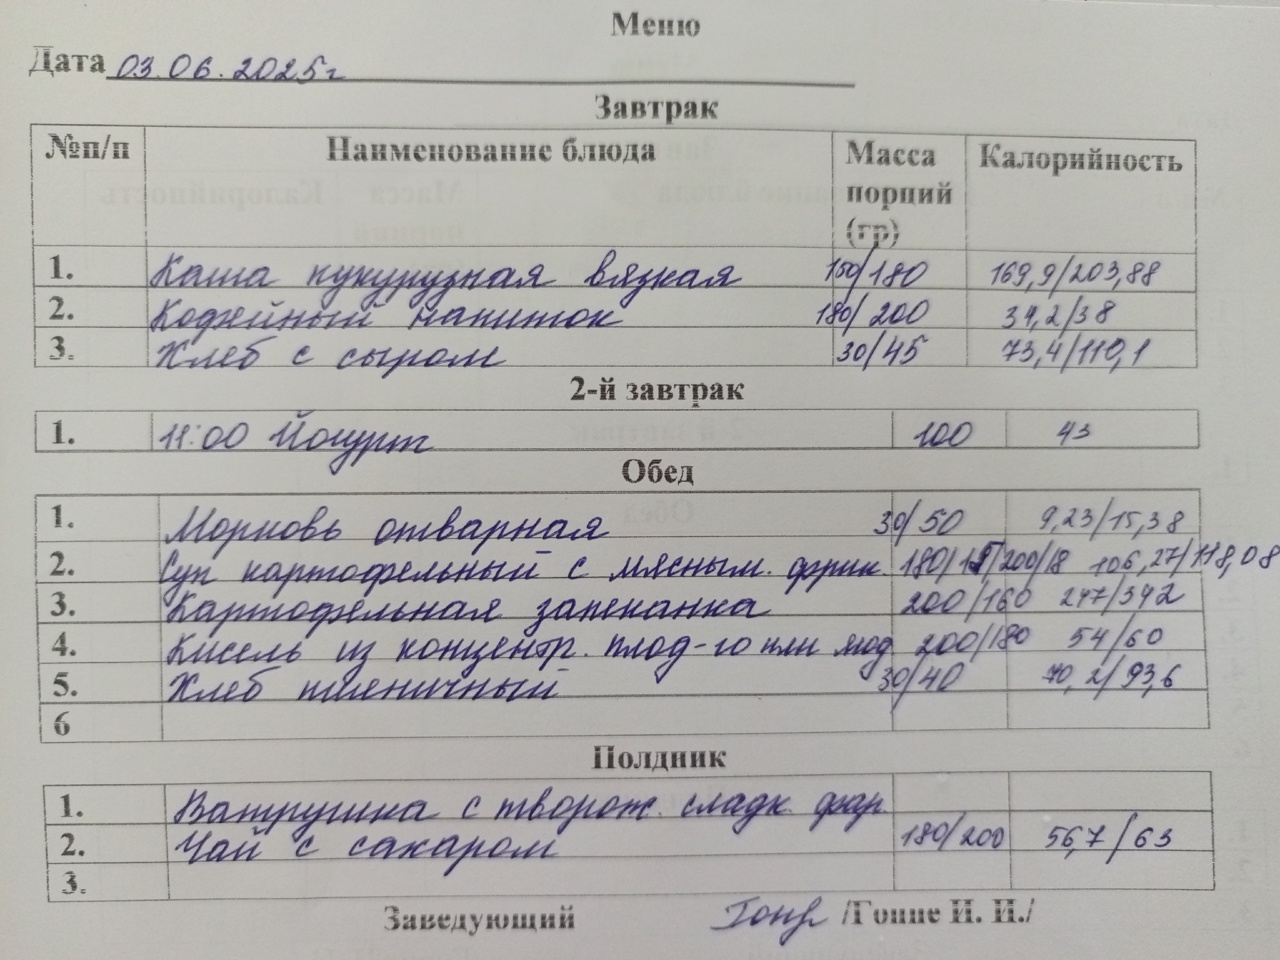 Меню
Дата 03.06.2025г
Завтрак
№п/п Наименование блюда Масса порций (гр) Калорийность
1. Каша кукурузная вязкая 150/180 169,9/203,88
2. Кофейный напиток 180/200 34,2/38
3. Хлеб с сыром 30/45 73,4/110,1
2-й завтрак
1. 11:00 Йогурт 100 43
Обед
1. Морковь отварная 30/50 9,23/15,38
2. Суп картофельный с мясным. фрик. 180/15/200/18 106,27/118,08
3. Картофельная запеканка 200/160 247/342
4. Кисель из концентр. плод-го или ягод 200/180 54/60
5. Хлеб пшеничный 30/40 70,2/93,6
6
Полдник
1. Ватрушка с творож. сладк. фар.
2. Чай с сахаром 180/200 56,7/63
3.
Заведующий /Гоппе И. И./